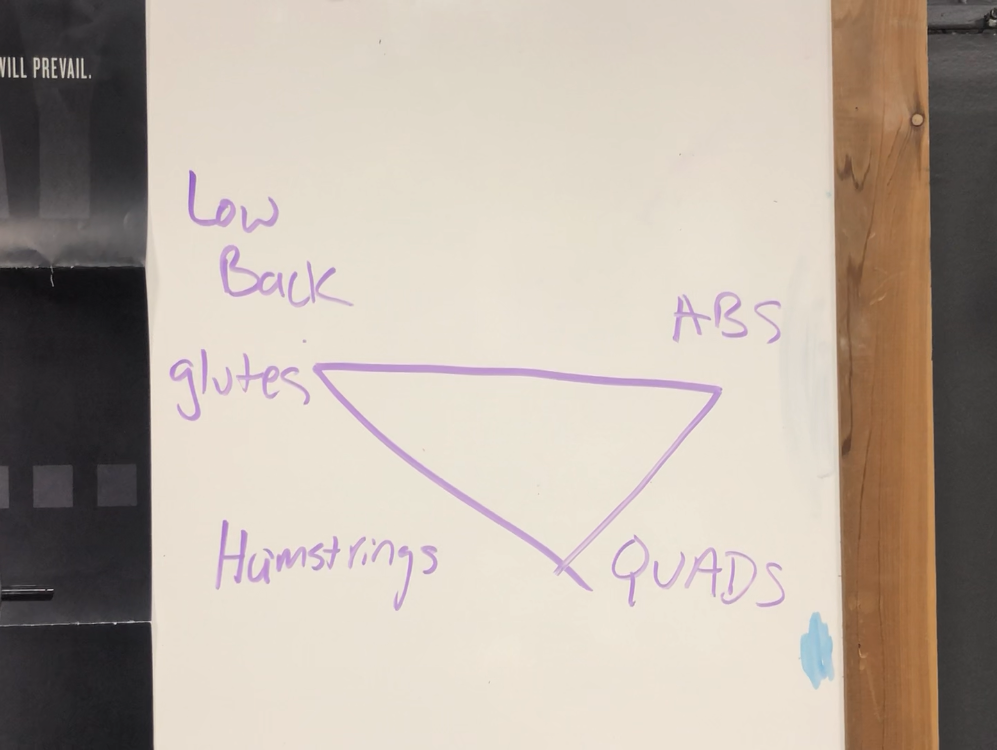 WILL PREVAIL.
Low
Back
ABS
glutes
Hamstrings
QUADS